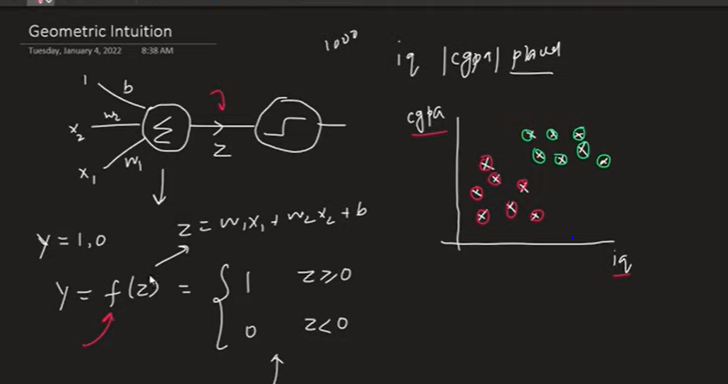 Geometric Intuition
Tuesday, January 4, 2022 8:38 AM
1000
iq |cgpa| placed
1 b
x₂ w₂ Σ
x₁ w₁
z
cgpa
iq
z = w₁x₁ + w₂x₂ + b
y = 1,0
y = f(z) = { 1 z ≥ 0
0 z < 0